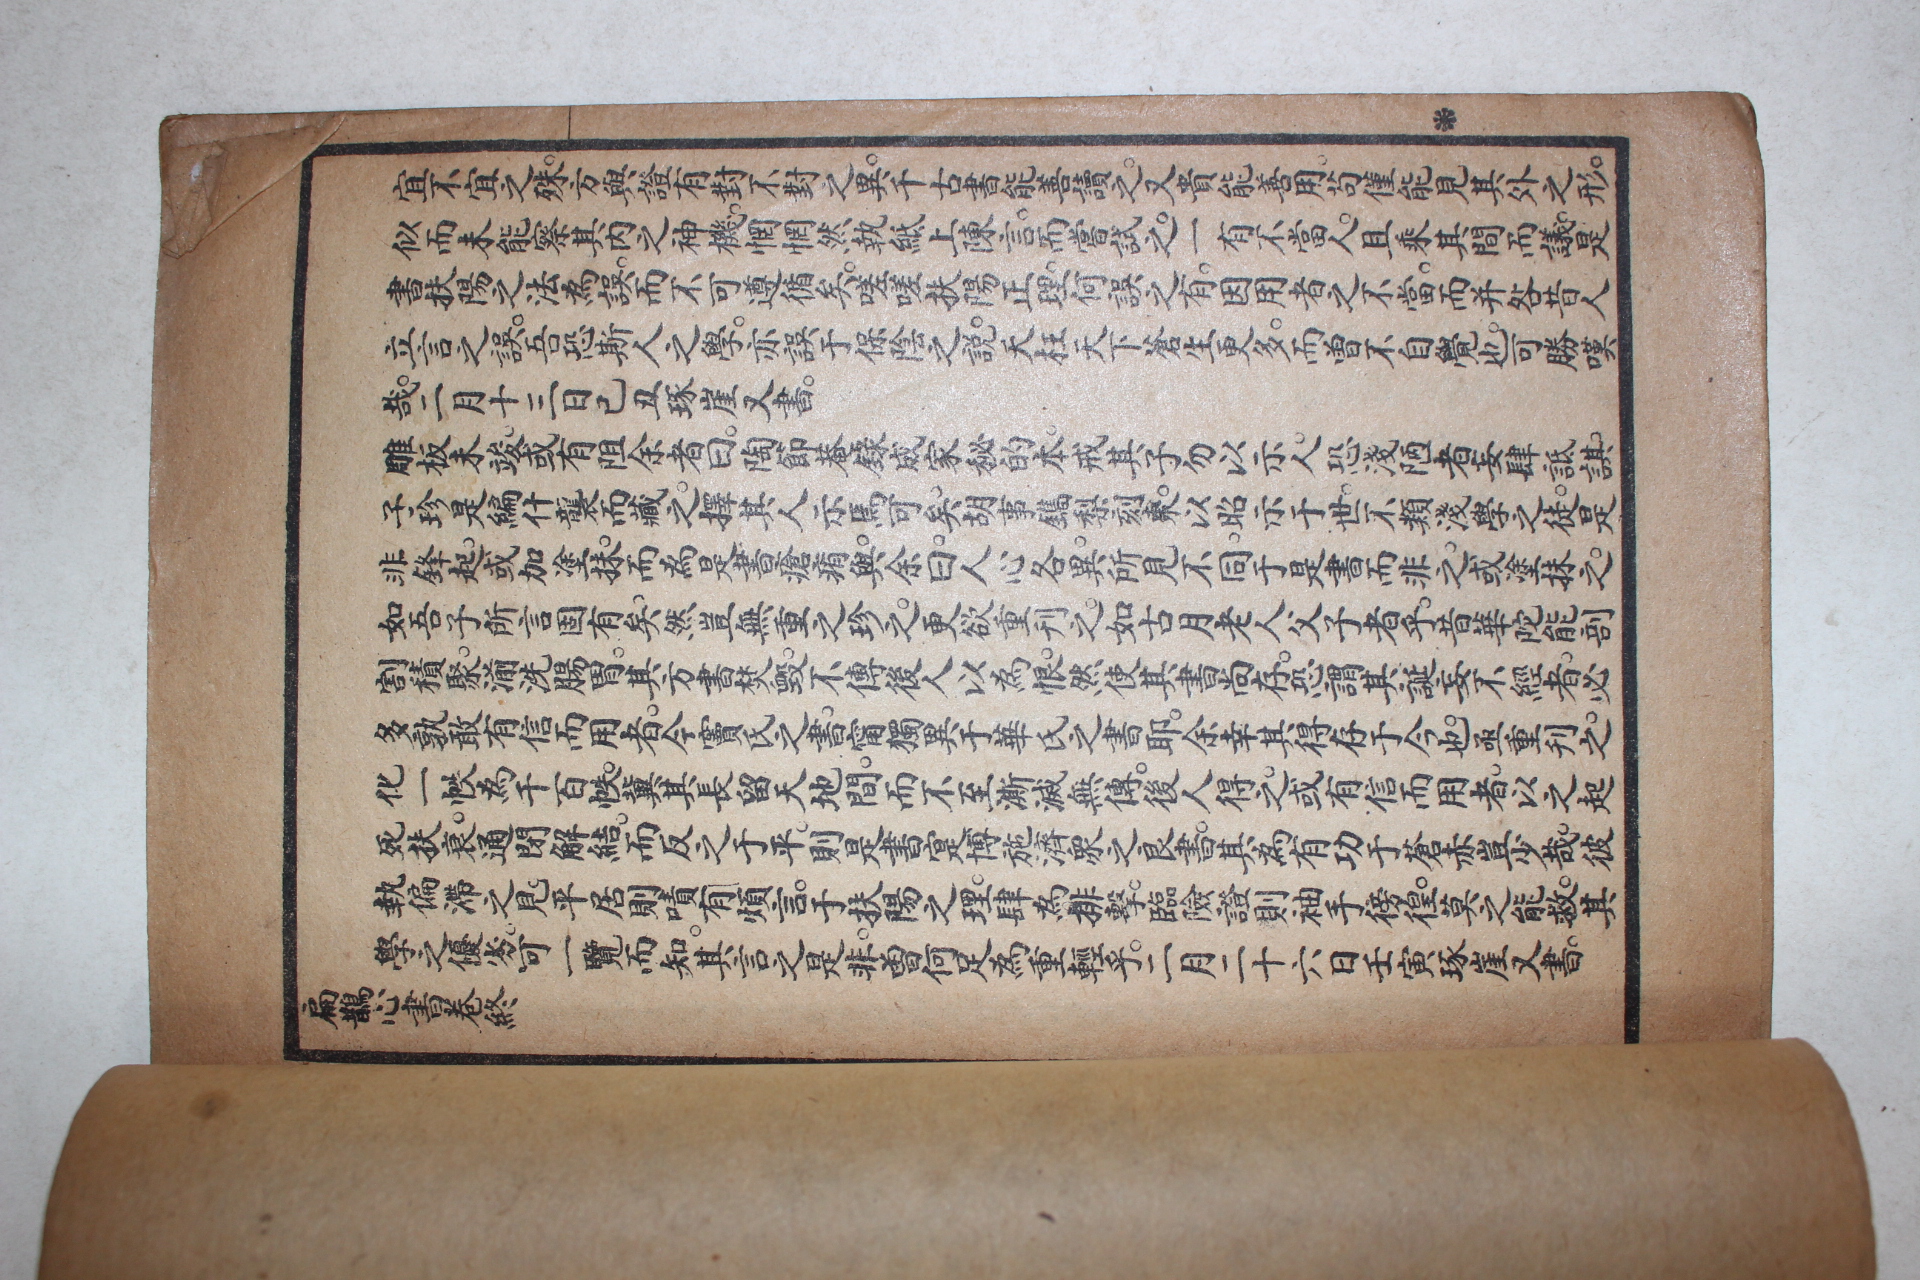 宜不宜之殊。方與證有對不對之異。千古書能善讀之。又貴能善用。苟僅能見其外之形。
似而未能察其內之神機。惘惘然執紙上陳言。而嘗試之。一有不當。人且乘其間而議。是
書扶陽之法為誤。而不可遵循矣。嗟嗟扶陽正理。何誤之有。因用者之不當。而并咎昔人
立言之誤。吾恐斯人之學。亦誤于保陰之說。夭枉天下蒼生更多。而曾不自覺也。可勝嘆
哉。二月十三日己丑琢崖又書。
雕板未竣。或有阻余者曰。陶節菴錄成家秘的本。戒其子勿以示人。恐淺陋者妄肆詆諆。
子珍是編什襲而藏之。擇其人示焉可矣。胡事鐫梨刻棗。以昭示于世。不類淺學之徒。是
非鋒起。或加塗抹。而為是書瘡痏與。余曰。人心各異。所見不同。于是書而非之。或塗抹之。
如吾子所言固有矣。然豈無重之珍之。更欲重刊之。如古月老人父子者乎。昔華陀能剖
割積聚。湔洗腸胃。其方書焚毀。不傳後人以為恨。然使其書尚存。恐謂其誕妄不經者。必
多孰敢有信而用者。今竇氏之書。甯獨異于華氏之書耶。余幸其得存于今也。亟重刊之。
化一帙為千百帙。冀其長留天地間。而不至澌滅無傳。後人得之。或有信而用者。以之起
死扶衰。通閉解結。而反之于平。則是書寔博施濟衆之良書。其為有功于蒼赤豈少哉。彼
執偏滯之見。平居則嘖有煩言。于扶陽之理。肆為排擊。臨險證則袖手徬徨。莫之能救。其
學之優劣。可一覽而知。其言之是非。曾何足為重輕乎。二月二十六日壬寅琢崖又書。
扁鵲心書卷終